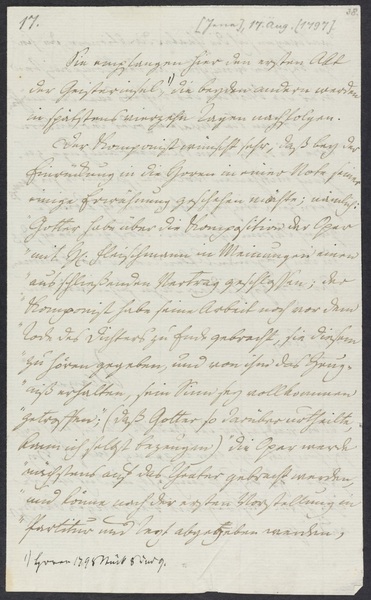 17.
[Jena], 17. Aug. [1797]
38.
Sie empfangen hier den ersten Akt
der Geisterinsel,¹) die beyden andern werden
in spätstens vierzehn Tagen nachfolgen.
Der Komponist wünscht sehr, daß bey der
Einrückung in die Horen in einer Note seiner
einige Erwähnung geschehen möchte; nämlich:
Gotter habe über die Komposition der Oper
"mit H. Fleischmann in Meinungen einen
"ausschließenden Vertrag geschlossen; der
"Komponist habe seine Arbeit noch vor dem
"Tode des Dichters zu Ende gebracht, sie diesem
"zu hören gegeben, und von ihm das Zeug-
"niß erhalten, sein Sinn sey vollkommen
"getroffen;" (daß Gotter so darüber urtheilte,
kann ich selbst bezeugen) "die Oper werde
"nächstens auf das Theater gebracht werden,
"und könne nach der ersten Vorstellung in
"Partitur und Text abgegeben werden,
¹) Horen 1798 Stück 8 und 9.